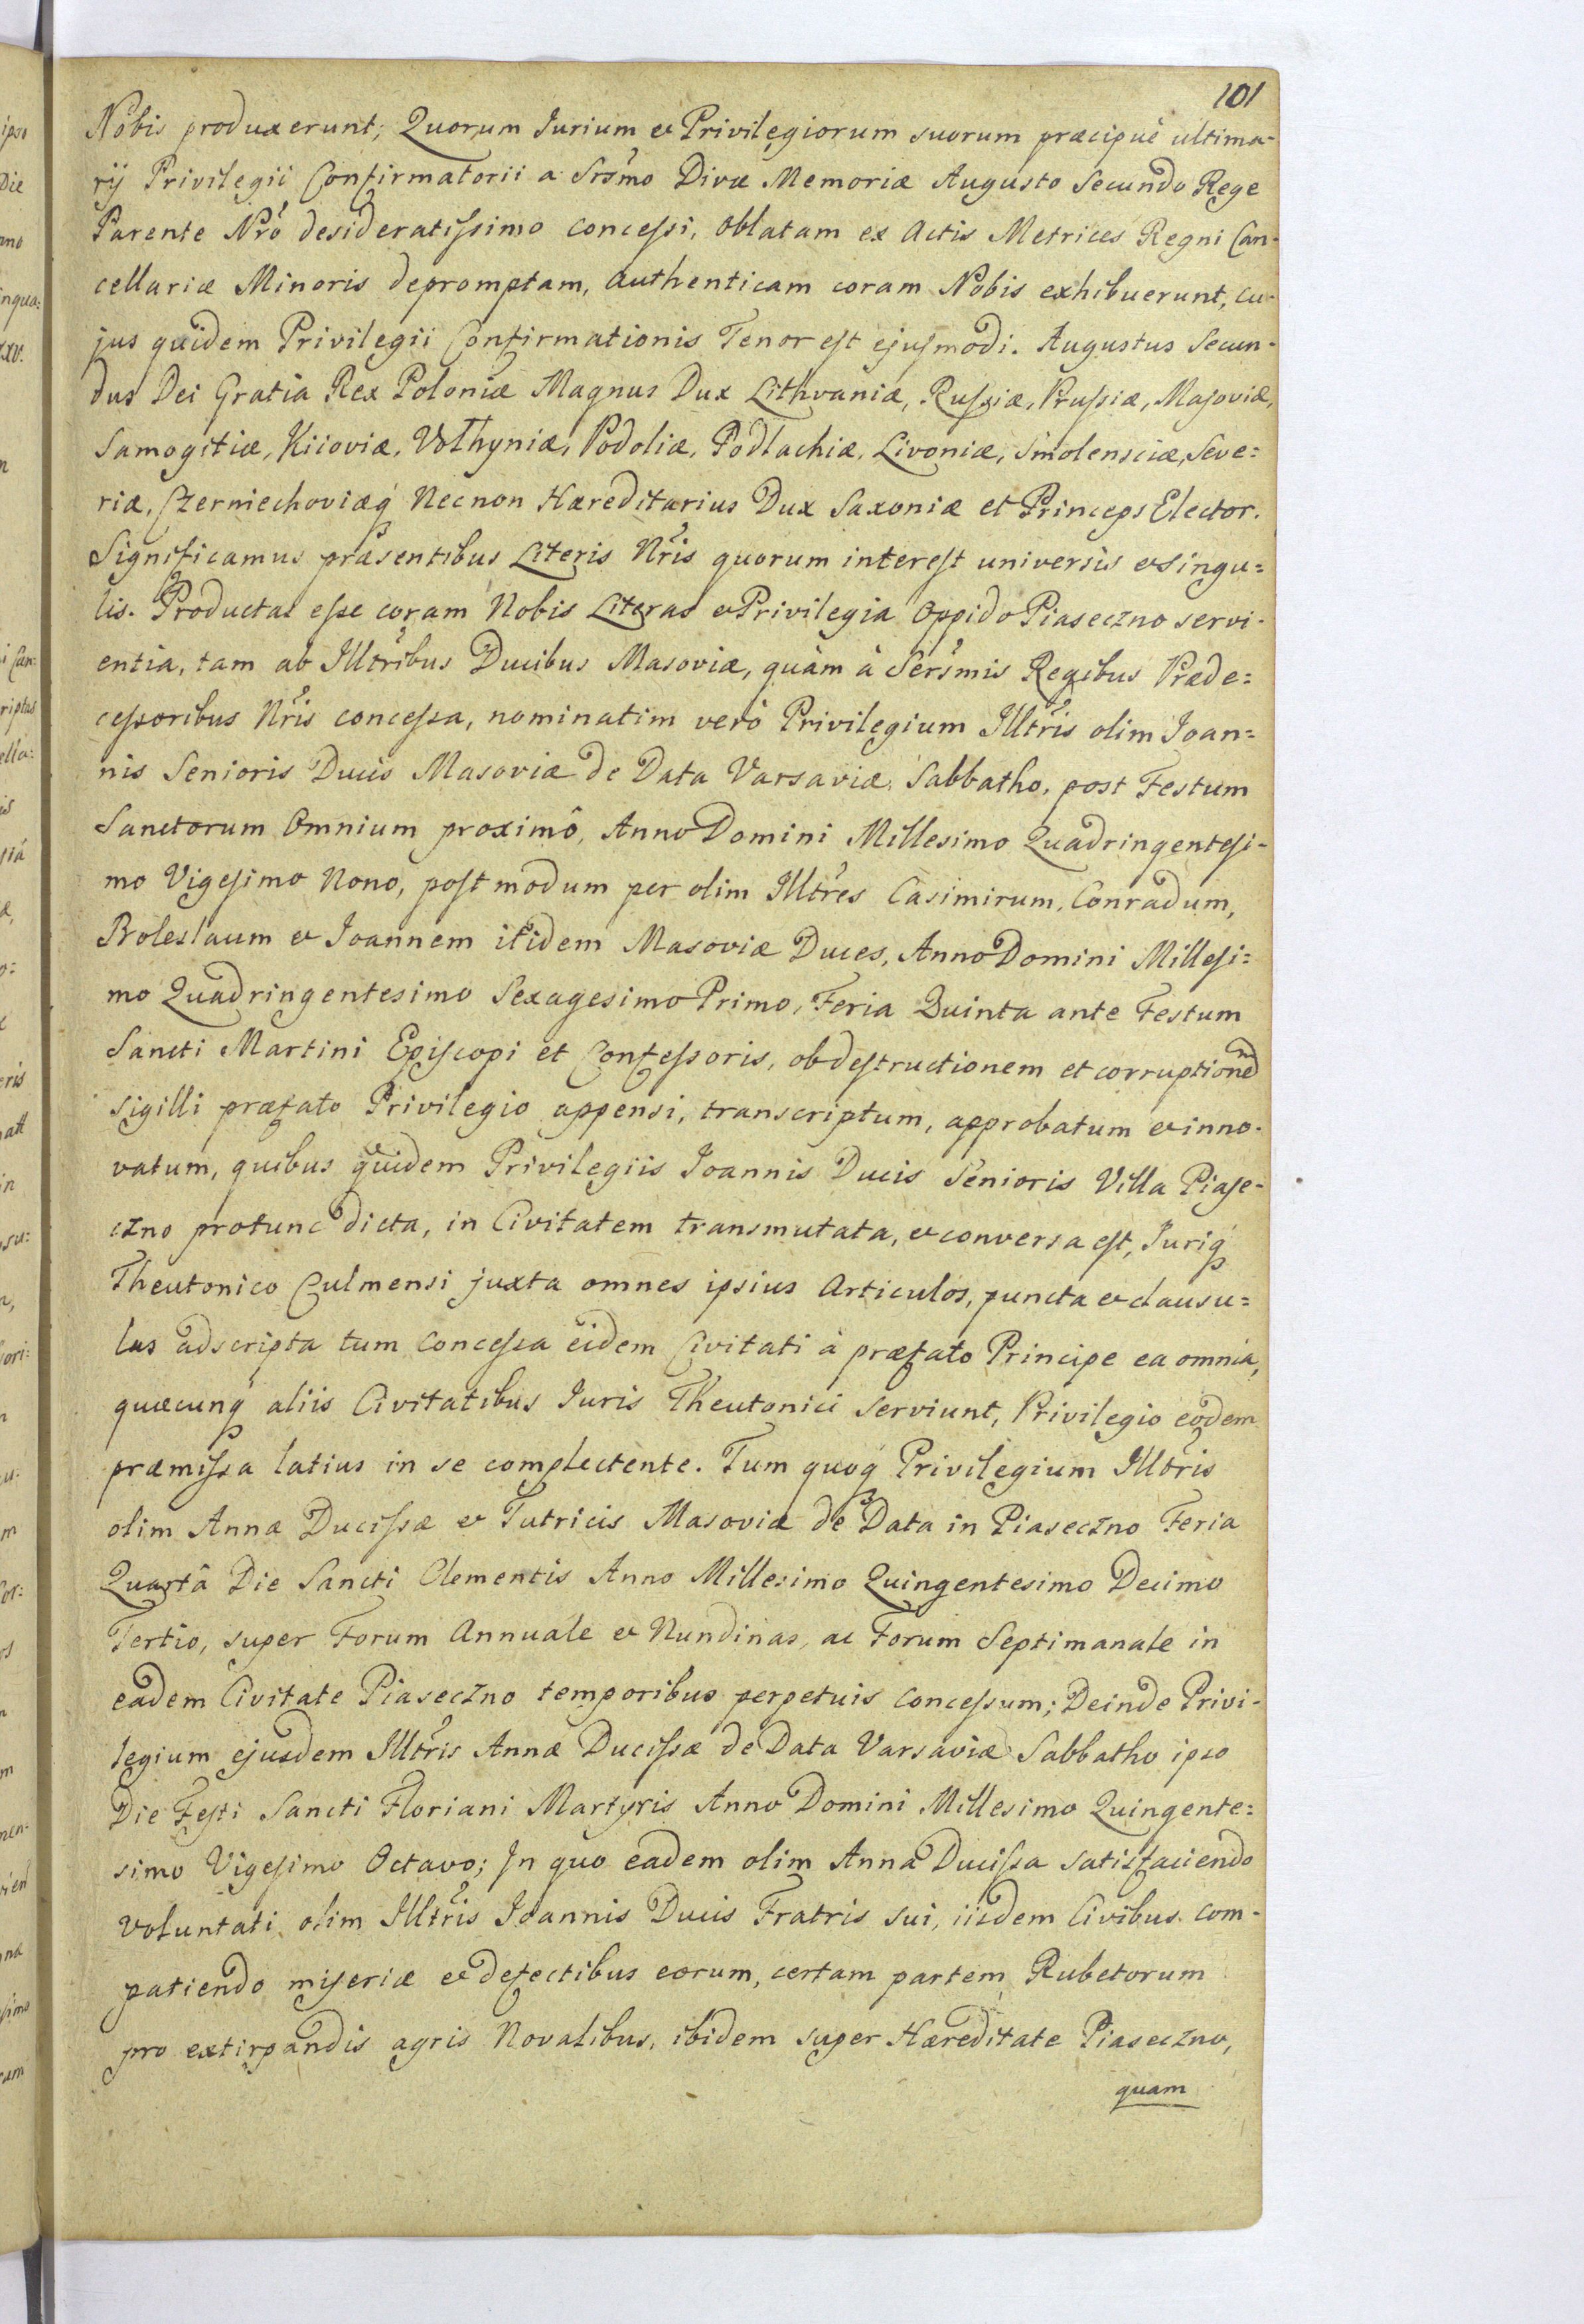 101
Nobis produxerunt; Quorum Jurium et Privilegiorum suorum præcipuè ultima-
rij Privilegii Confirmatorii a Srs̃mo Divæ Memoriæ Augusto Secundo Rege
Parente Nr̃o desideratissimo concessi, oblatam ex Actis Metrices Regni Can-
cellariæ Minoris depromptam, authenticam coram Nobis exhibuerunt, cu-
jus quidem Privilegii Confirmationis Tenor est ejusmodi. Augustus Secun-
dus Dei Gratia Rex Poloniæ Magnus Dux Lithvaniæ, Russiæ, Prussiæ, Masoviæ,
Samogitiæ, Kiioviæ, Volhyniæ, Podoliæ, Podlachiæ, Livoniæ, Smolensciæ, Seve=
riæ, Czerniechoviæq́ Necnon Hæreditarius Dux Saxoniæ et Princeps Elector.
Significamus præsentibus Literis Nr̃is quorum interest universis et singu=
lis. Productas esse coram Nobis Literas et Privilegia Oppido Piaseczno servi-
entia, tam ab Illtr̃ibus Ducibus Masoviæ, quàm à Sers̃mis Regibus Præde=
cessoribus Nr̃is concessa, nominatim verò Privilegium Illtr̃is olim Joan=
nis Senioris Ducis Masoviæ de Data Varsaviæ, Sabbatho, post Festum
Sanctorum Omnium proximô, Anno Domini Millesimo Quadringentesi-
mo Vigesimo Nono, postmodum per olim Illtr̃es Casimirum, Conradum,
Boleslaum et Joannem itidem Masoviæ Duces, Anno Domini Millesi=
mo Quadringentesimo Sexagesimo Primo, Feria Quinta ante Festum
Sancti Martini Episcopi et Confessoris, ob destructionem et corruptionem
sigilli præfato Privilegio appensi, transcriptum, approbatum et inno-
vatum, quibus quidem Privilegiis Joannis Ducis Senioris Villa Piase-
czno protunc dicta, in Civitatem transmutata, et conversa est, Juriq́
Theutonico Culmensi juxta omnes ipsius Articulos, puncta et clausu=
las adscripta tum concessa eidem Civitati à præfato Principe ea omnia,
quæcunq́ aliis Civitatibus Juris Theutonici serviunt, Privilegio eodem
præmissa latius in se complectente. Tum quoq́ Privilegium Illtr̃is
olim Annæ Ducissæ et Tutricis Masoviæ de Data in Piaseczno Feria
Quartâ Die Sancti Clementis Anno Millesimo Quingentesimo Decimo
Tertio, super Forum Annuale et Nundinas, ac Forum Septimanale in
eadem Civitate Piaseczno temporibus perpetuis concessum; Deinde Privi-
legium ejusdem Illtr̃is Annæ Ducissæ de Data Varsaviæ Sabbatho ipso
Die Festi Sancti Floriani Martyris Anno Domini Millesimo Quingente=
simo Vigesimo Octavo; In quo eadem olim Anna Ducissa satisfaciendo
voluntati olim Illtr̃is Joannis Ducis Fratris sui, iisdem Civibus com-
patiendo miseriæ et defectibus eorum, certam partem Rubetorum
pro extirpandis agris Novalibus, ibidem super Hæreditate Piaseczno,
quam